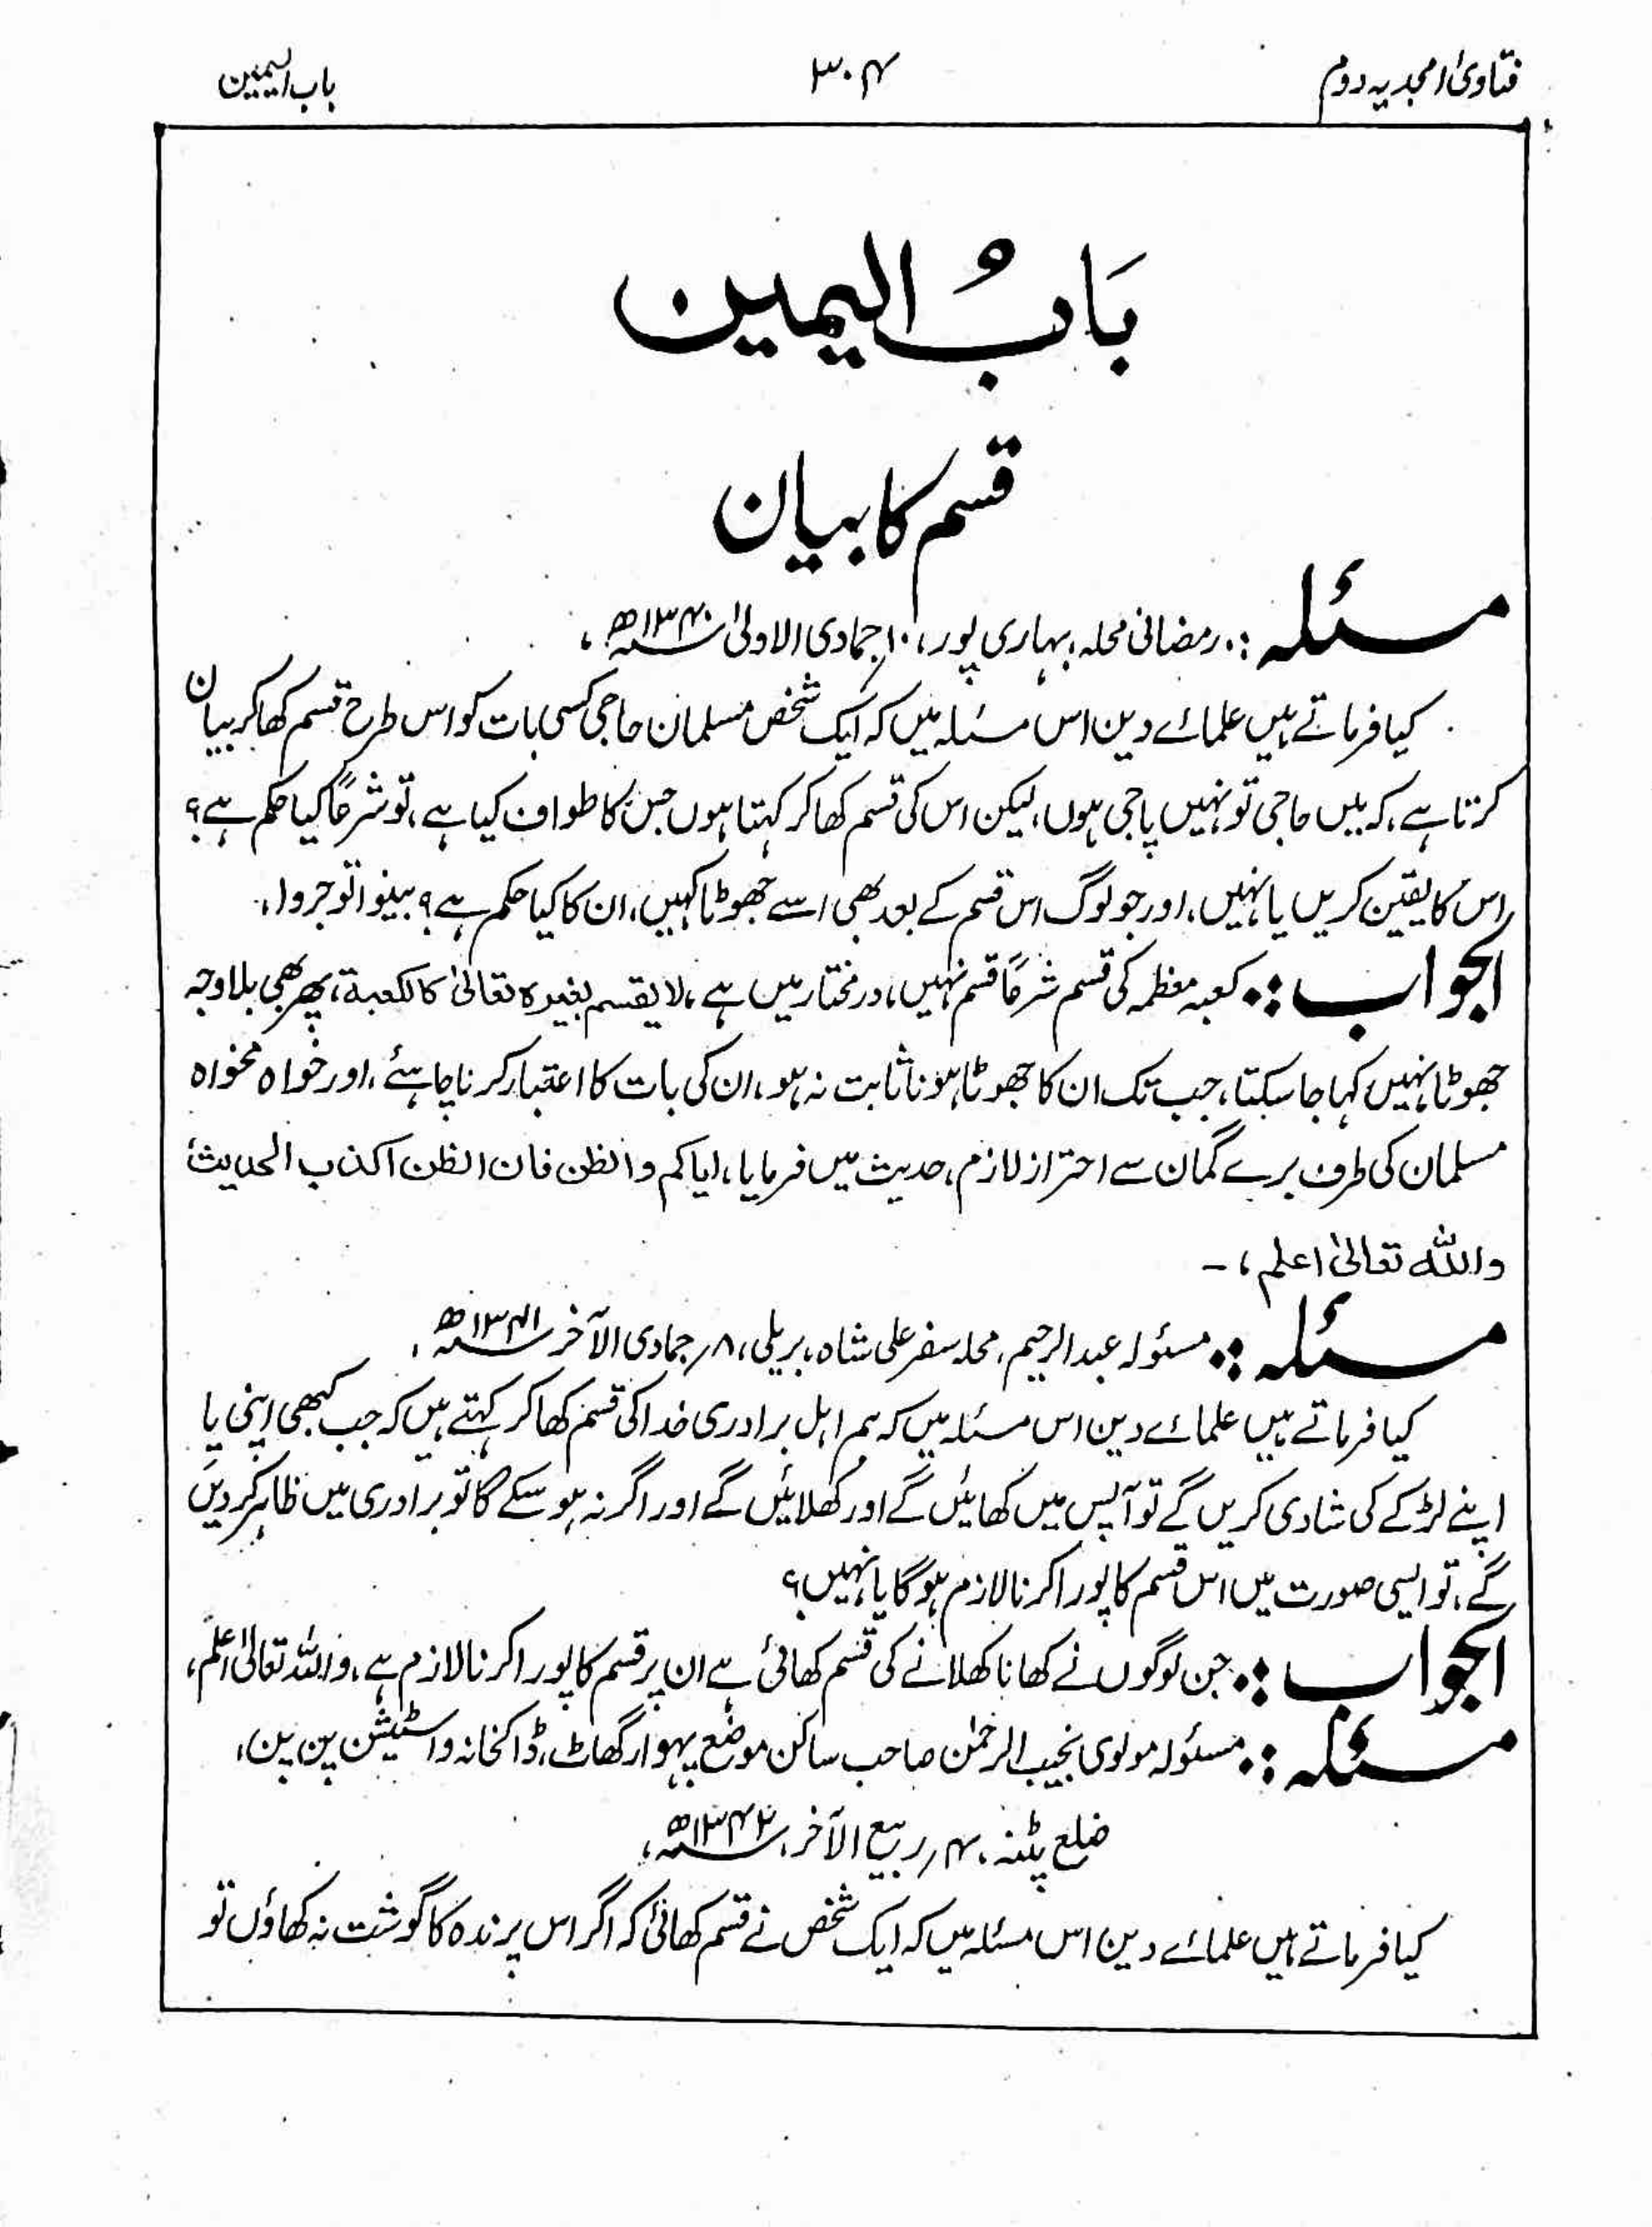 فتاویٰ امجدیہ دوم
۳۰۴
باب الیمین
بَابُ الیمین
قسم کا بیان
مسئلہ :۔ رمضانی محلہ بہاری پور، ۱۰؍جمادی الاولیٰ ۱۳۴۰ھ،
کیا فرماتے ہیں علمائے دین اس مسئلہ میں کہ ایک شخص مسلمان حاجی کسی بات کو اس طرح قسم کھا کر بیان
کرتا ہے، کہ میں حاجی تو نہیں پاجی ہوں، لیکن اس کی قسم کھا کر کہتا ہوں جس کا طواف کیا ہے، تو شرعًا کیا حکم ہے؟
اس کا یقین کریں یا نہیں، اور جو لوگ اس قسم کے بعد بھی اسے جھوٹا کہیں، ان کا کیا حکم ہے؟ بینوا توجروا،
الجواب :۔ کعبہ معظمہ کی قسم شرعًا قسم نہیں، در مختار میں ہے، لا یقسم بغیرہ تعالیٰ کالکعبة، پھر بھی بلا وجہ
جھوٹا نہیں کہا جا سکتا، جب تک ان کا جھوٹا ہونا ثابت نہ ہو، ان کی بات کا اعتبار کرنا چاہئے، اور خواہ مخواہ
مسلمان کی طرف برے گمان سے احتراز لازم، حدیث میں فرمایا، ایاکم والظن فان الظن اکذب الحدیث
واللہ تعالیٰ اعلم، ۔
مسئلہ :۔ مسئولہ عبدالرحیم، محلہ سفر علی شاہ، بریلی، ۸؍جمادی الآخر ۱۳۴۱ھ،
کیا فرماتے ہیں علمائے دین اس مسئلہ میں کہ ہم اہل برادری خدا کی قسم کھا کر کہتے ہیں کہ جب کبھی اپنی یا
اپنے لڑکے کی شادی کریں گے تو آپس میں کھائیں گے اور کھلائیں گے اور اگر نہ ہو سکے گا تو برادری میں ظاہر کر دیں
گے، تو ایسی صورت میں اس قسم کا پورا کرنا لازم ہوگا یا نہیں؟
الجواب :۔ جن لوگوں نے کھانا کھلانے کی قسم کھائی ہے ان پر قسم کا پورا کرنا لازم ہے، واللہ تعالیٰ اعلم،
مسئلہ :۔ مسئولہ مولوی نجیب الرحمٰن صاحب ساکن موضع پہوار گھاٹ، ڈاکخانہ و اسٹیشن پن پن،
ضلع پٹنہ، ۴؍ربیع الآخر، ۱۳۴۲ھ،
کیا فرماتے ہیں علمائے دین اس مسئلہ میں کہ ایک شخص نے قسم کھائی کہ اگر اس پرندہ کا گوشت نہ کھاؤں تو